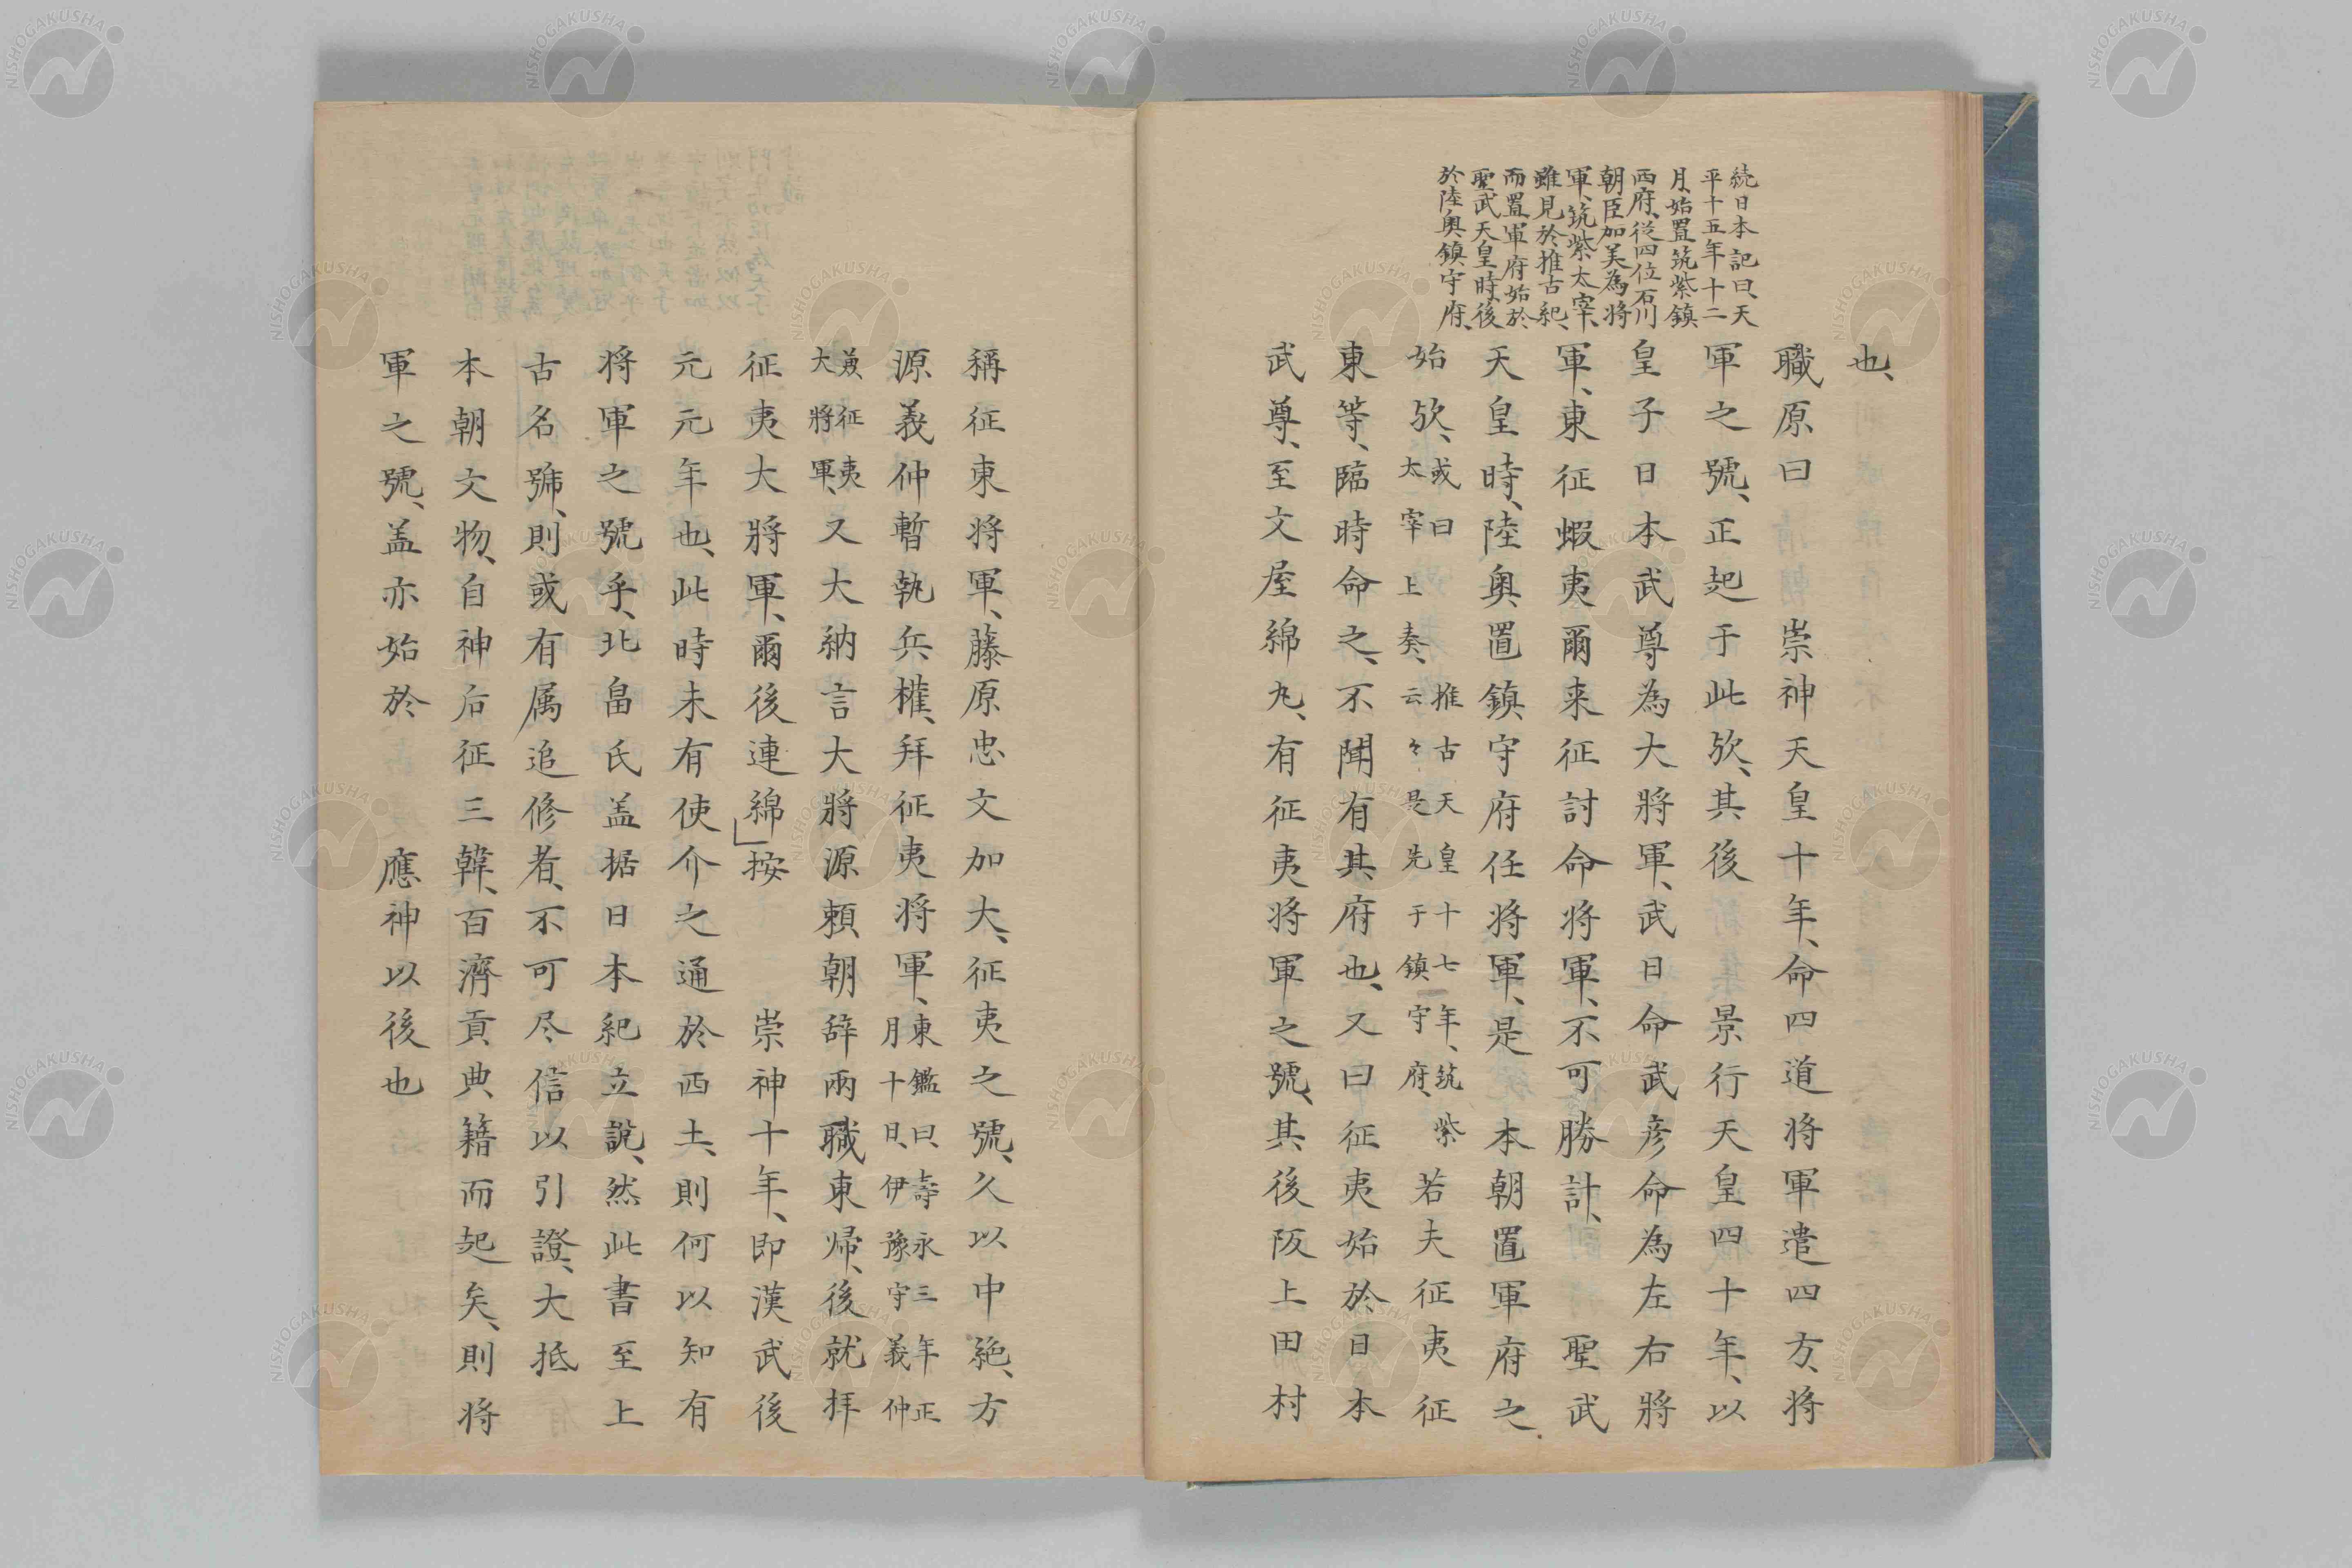 続日本記曰、天
平十五年十二
月、始置筑紫鎮
西府、從四位石川
朝臣加美為將
軍、筑紫太宰、
雖見於推古紀、
而置軍府始於
聖武天皇時、後
於陸奥鎮守府、
也、
職原曰　崇神天皇十年、命四道将軍遣四方、将
軍之號、正起于此欤、其後　景行天皇四十年、以
皇子日本武尊為大將軍、武日命武彦命為左右將
軍、東征蝦夷爾来征討命将軍、不可勝計、　聖武
天皇時、陸奥置鎮守府任将軍、是本朝置軍府之
始欤、或曰　推古天皇十七年、筑紫
太宰上奏、云々是先于鎮守府、若夫征夷征
東等、臨時命之、不聞有其府也、又曰征夷始於日本
武尊、至文屋綿丸、有征夷将軍之號、其後阪上田村
稱征東将軍、藤原忠文加大、征夷之號、久以中絶、方
源義仲暫執兵權、拜征夷将軍、東鑑曰、壽永三年正
月十日、伊豫守義仲
兼征夷
大将軍、又大納言大將源頼朝辞兩職東歸、後就拜
征夷大將軍、爾後連綿」按　崇神十年、即漢武後
元元年也、此時未有使介之通於西土、則何以知有
将軍之號乎、北畠氏盖据日本紀立說、然此書至上
古名號、則或有属追修者、不可尽信以引證、大抵
本朝文物、自神后征三韓、百濟貢典籍而起矣、則将
軍之號、盖亦始於　應神以後也
NISHOGAKUSHA